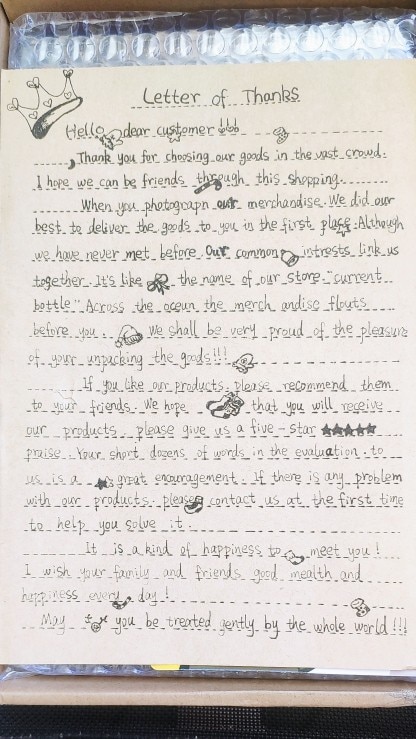 Letter of Thanks
Hello dear customer !!!
Thank you for choosing our goods in the vast crowd.
I hope we can be friends through this shopping.
When you photograpn our merchandise. We did our
best to deliver the goods to you in the first place. Although
we have never met before. Our common intrests link us
together. It's like the name of our store. "current
bottle" Across the oceun the merch andisc flouts
before you. We shall be very proud of the pleasure
of your unpacking the goods!!!
If you like our products. please recommend them
to your friends. We hope that you will receive
our products please give us a five-star ★★★★★
praise. Your short dozens of words in the evaluation. to
us is a great encouragement. If there is any problem
with our products. please contact us at the first time
to help you solve it.
It is a kind of happiness to meet you!
I wish your family and friends good mealth and
happiness every day!
May you be treated gently by the whole world!!!